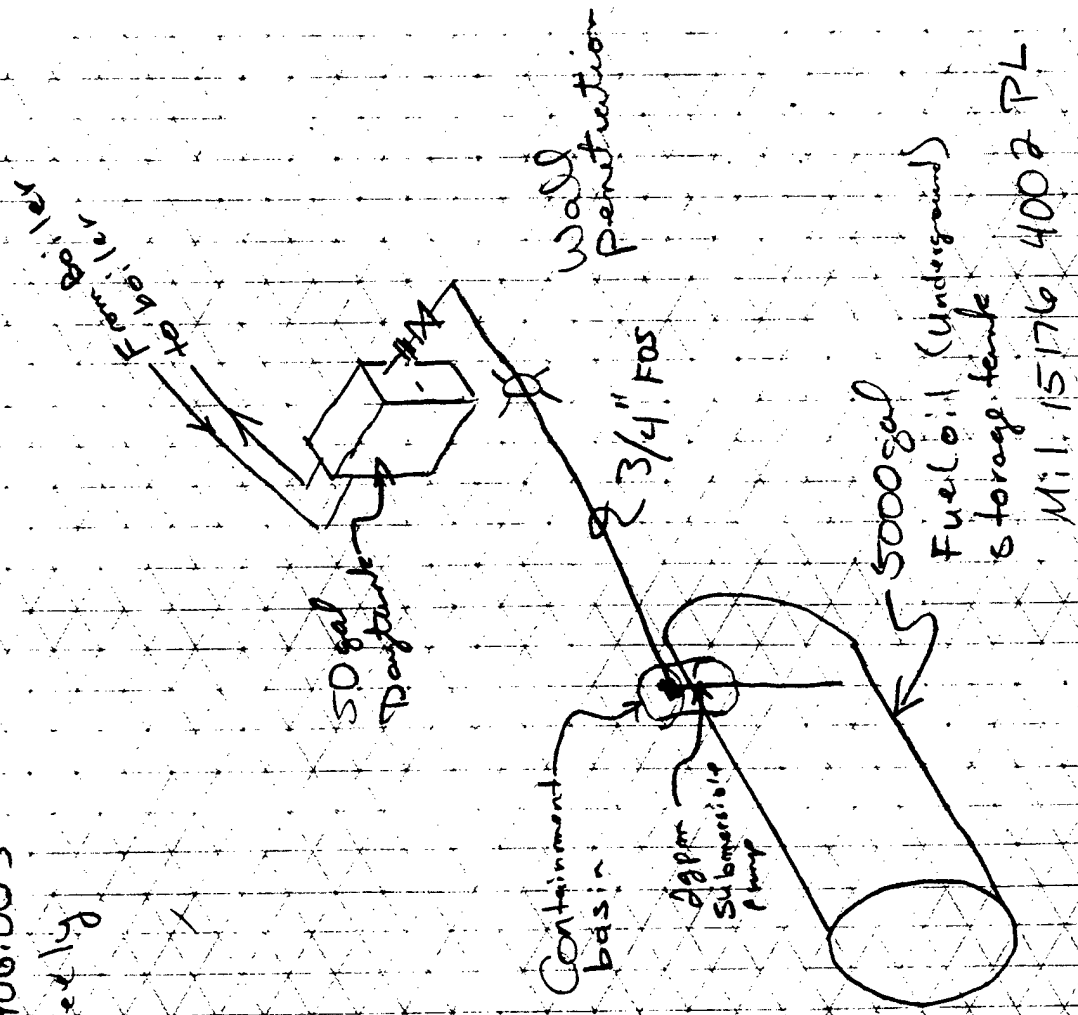 From boiler
to boiler
50 gal
Daytank
Wall
Penetration
3/4" FOS
Containment
basin
2gpm
Submersible
Pump
5000gal
Fuel oil (Underground)
storage tank
Mil. 15176 4002 PL